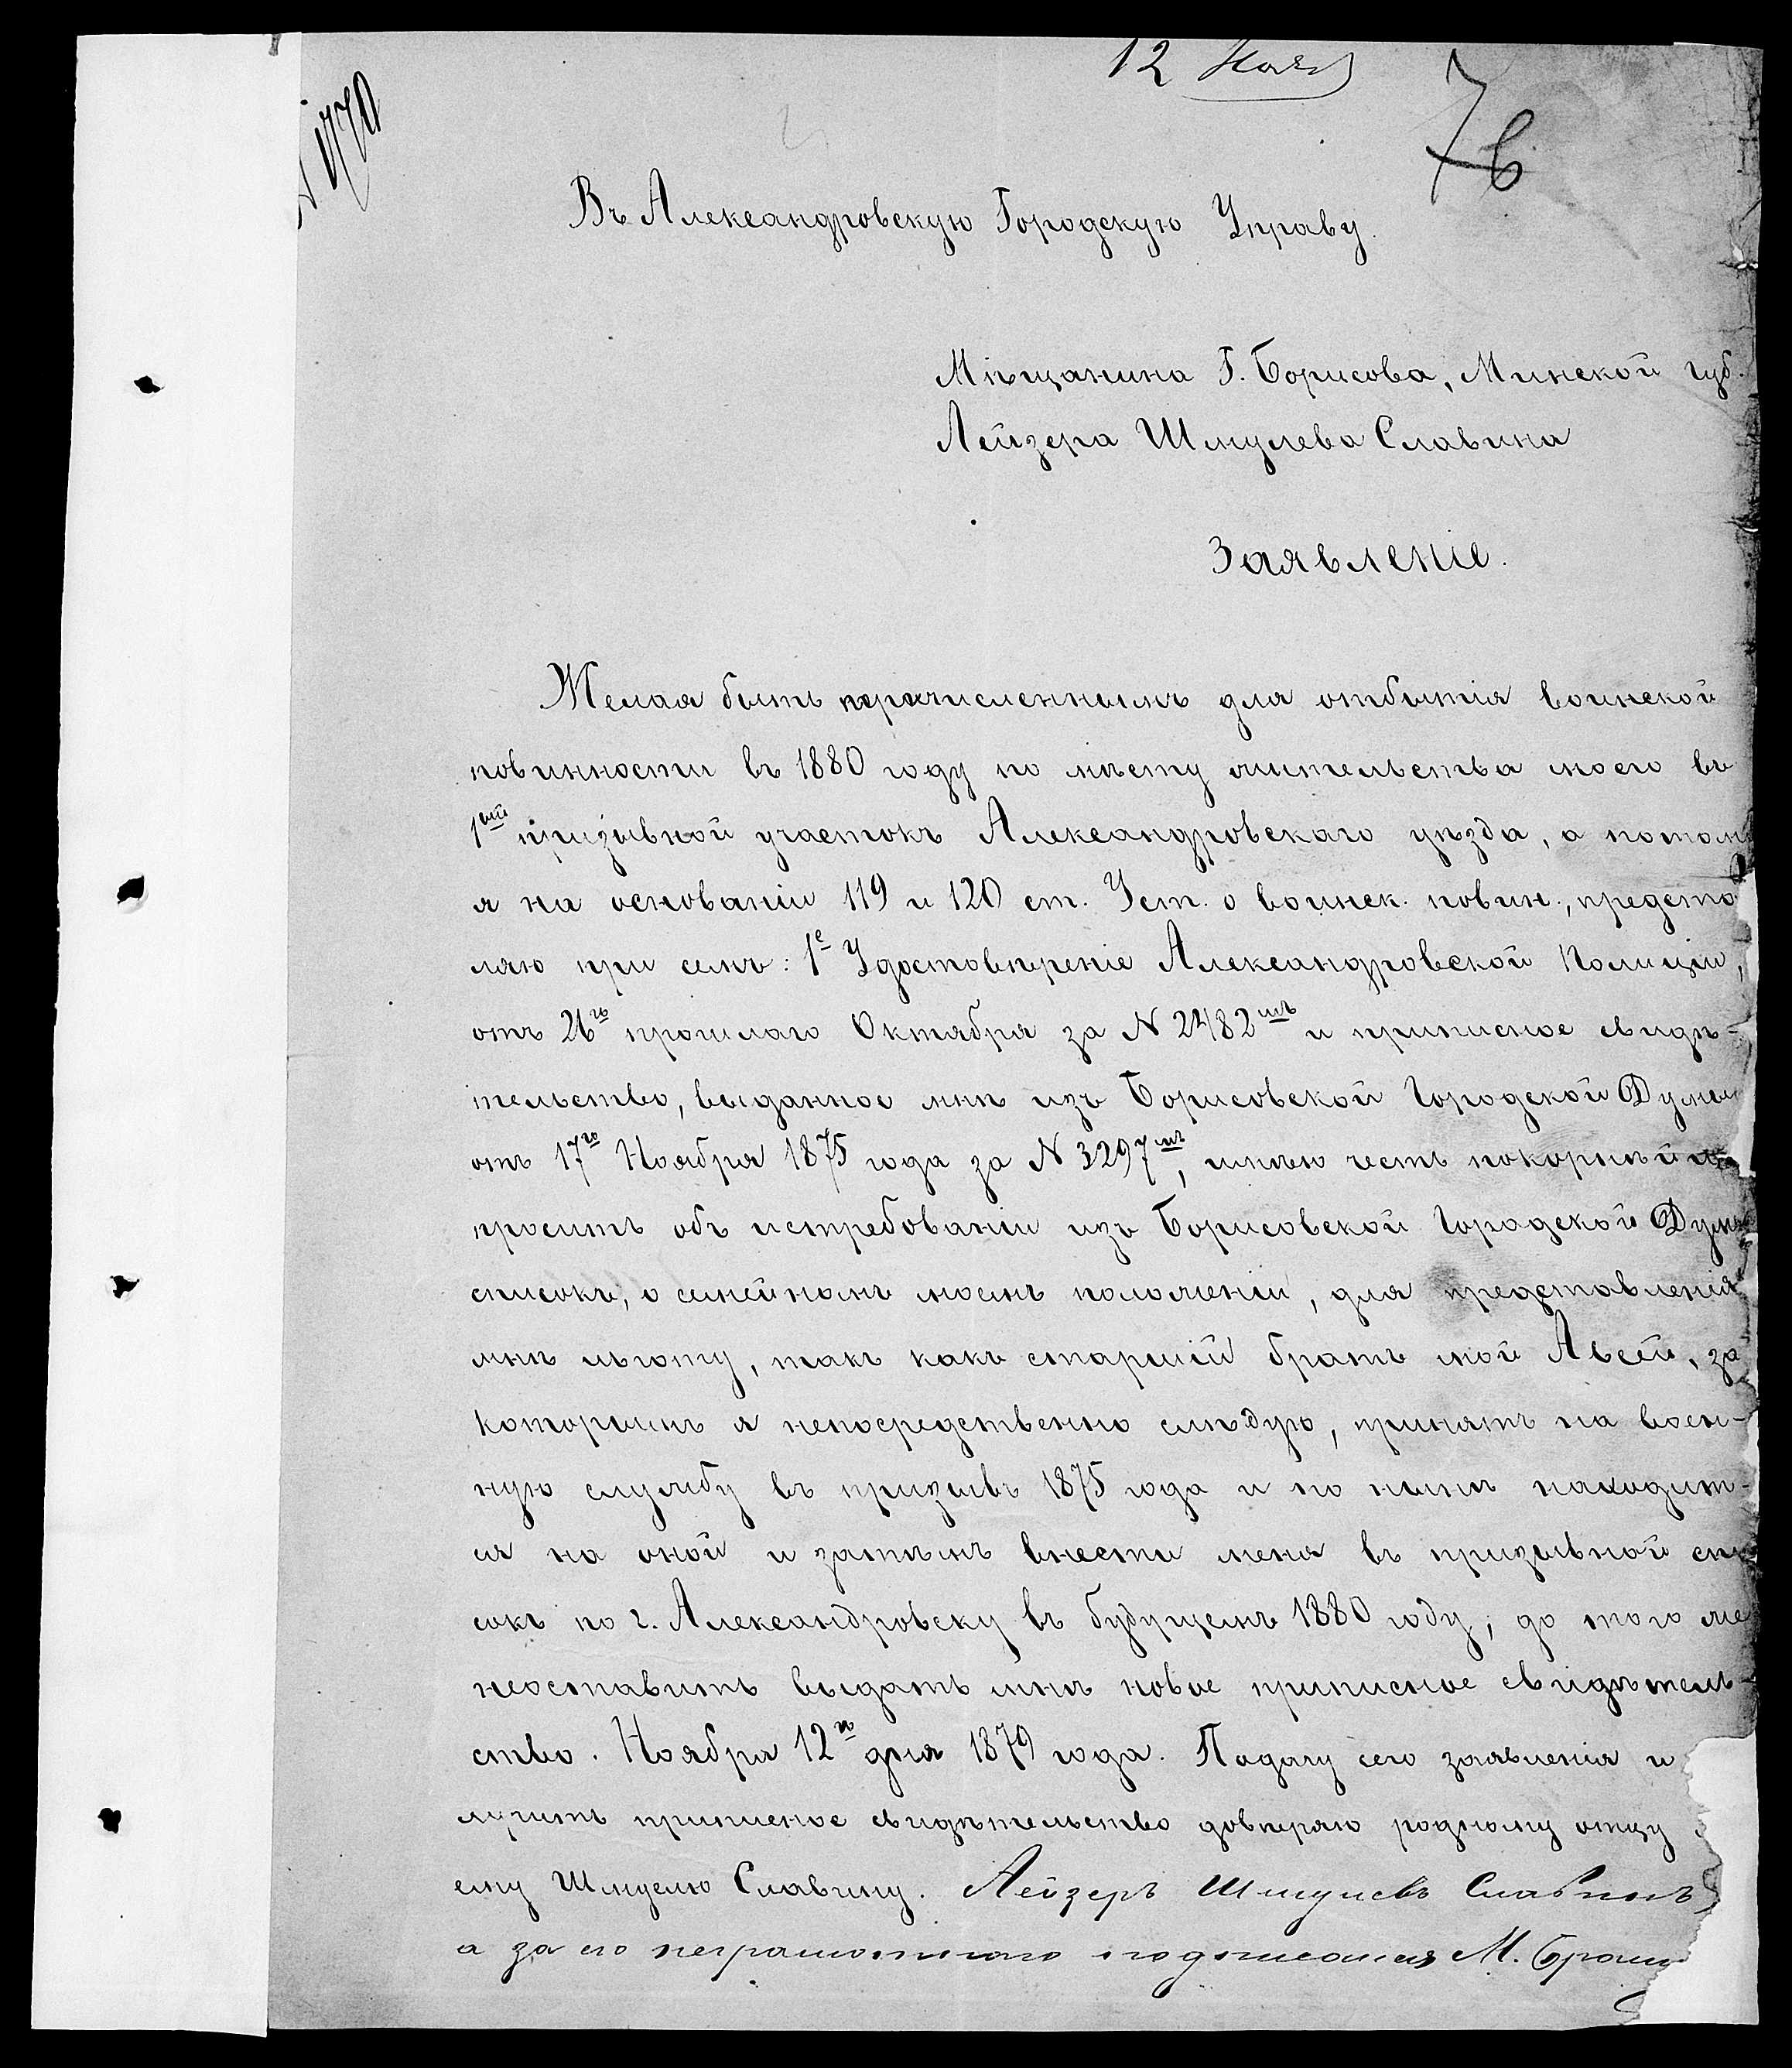 12 Нояб
76
№ 1770
Въ Александровскую Городскую Управу.
Мѣщанина Г. Борисова, Минской губ.
Лейзера Шмулева Славина
Заявленіе.
Желая быть перечисленнымъ для отбытія воинской
повинности въ 1880 году по мѣсту жительства моего въ
1ый призывной участокъ Александровскаго уѣзда, а потом
я на основаніи 119 и 120 ст. Уст. о воинск. повин., предста
ляю при семъ: 1е Удостовѣреніе Александровской Полиціи,
отъ 26го прошлаго Октября за № 2482мъ и приписное свидѣ-
тельство, выданное мнѣ изъ Борисовской Городской Думы
отъ 17го Ноября 1875 года за № 3297мъ, имѣю честь покорнѣйше
просить объ истребованіи изъ Борисовской Городской Думы
списокъ, о семейномъ моемъ положеніи, для представленія
мнѣ льготу, такъ какъ старшій братъ мой Авсей, за
которымъ я непосредственно слѣдую, принятъ на воен-
ную службу въ призывъ 1875 года и по нынѣ находит-
ся на оной и затѣмъ внести меня въ призывной спи
сокъ по г. Александровску въ будущемъ 1880 году, до того же
неоставить выдать мнѣ новое приписное свидѣтель-
ство. Ноября 12го дня 1879 года. Подачу сего заявленія и
лучить приписное свидѣтельство довѣряю родному отцу
ему Шмуелю Славину. Лейзеръ Шмулевъ Славинъ
а за его неграмотнаго подписался М.